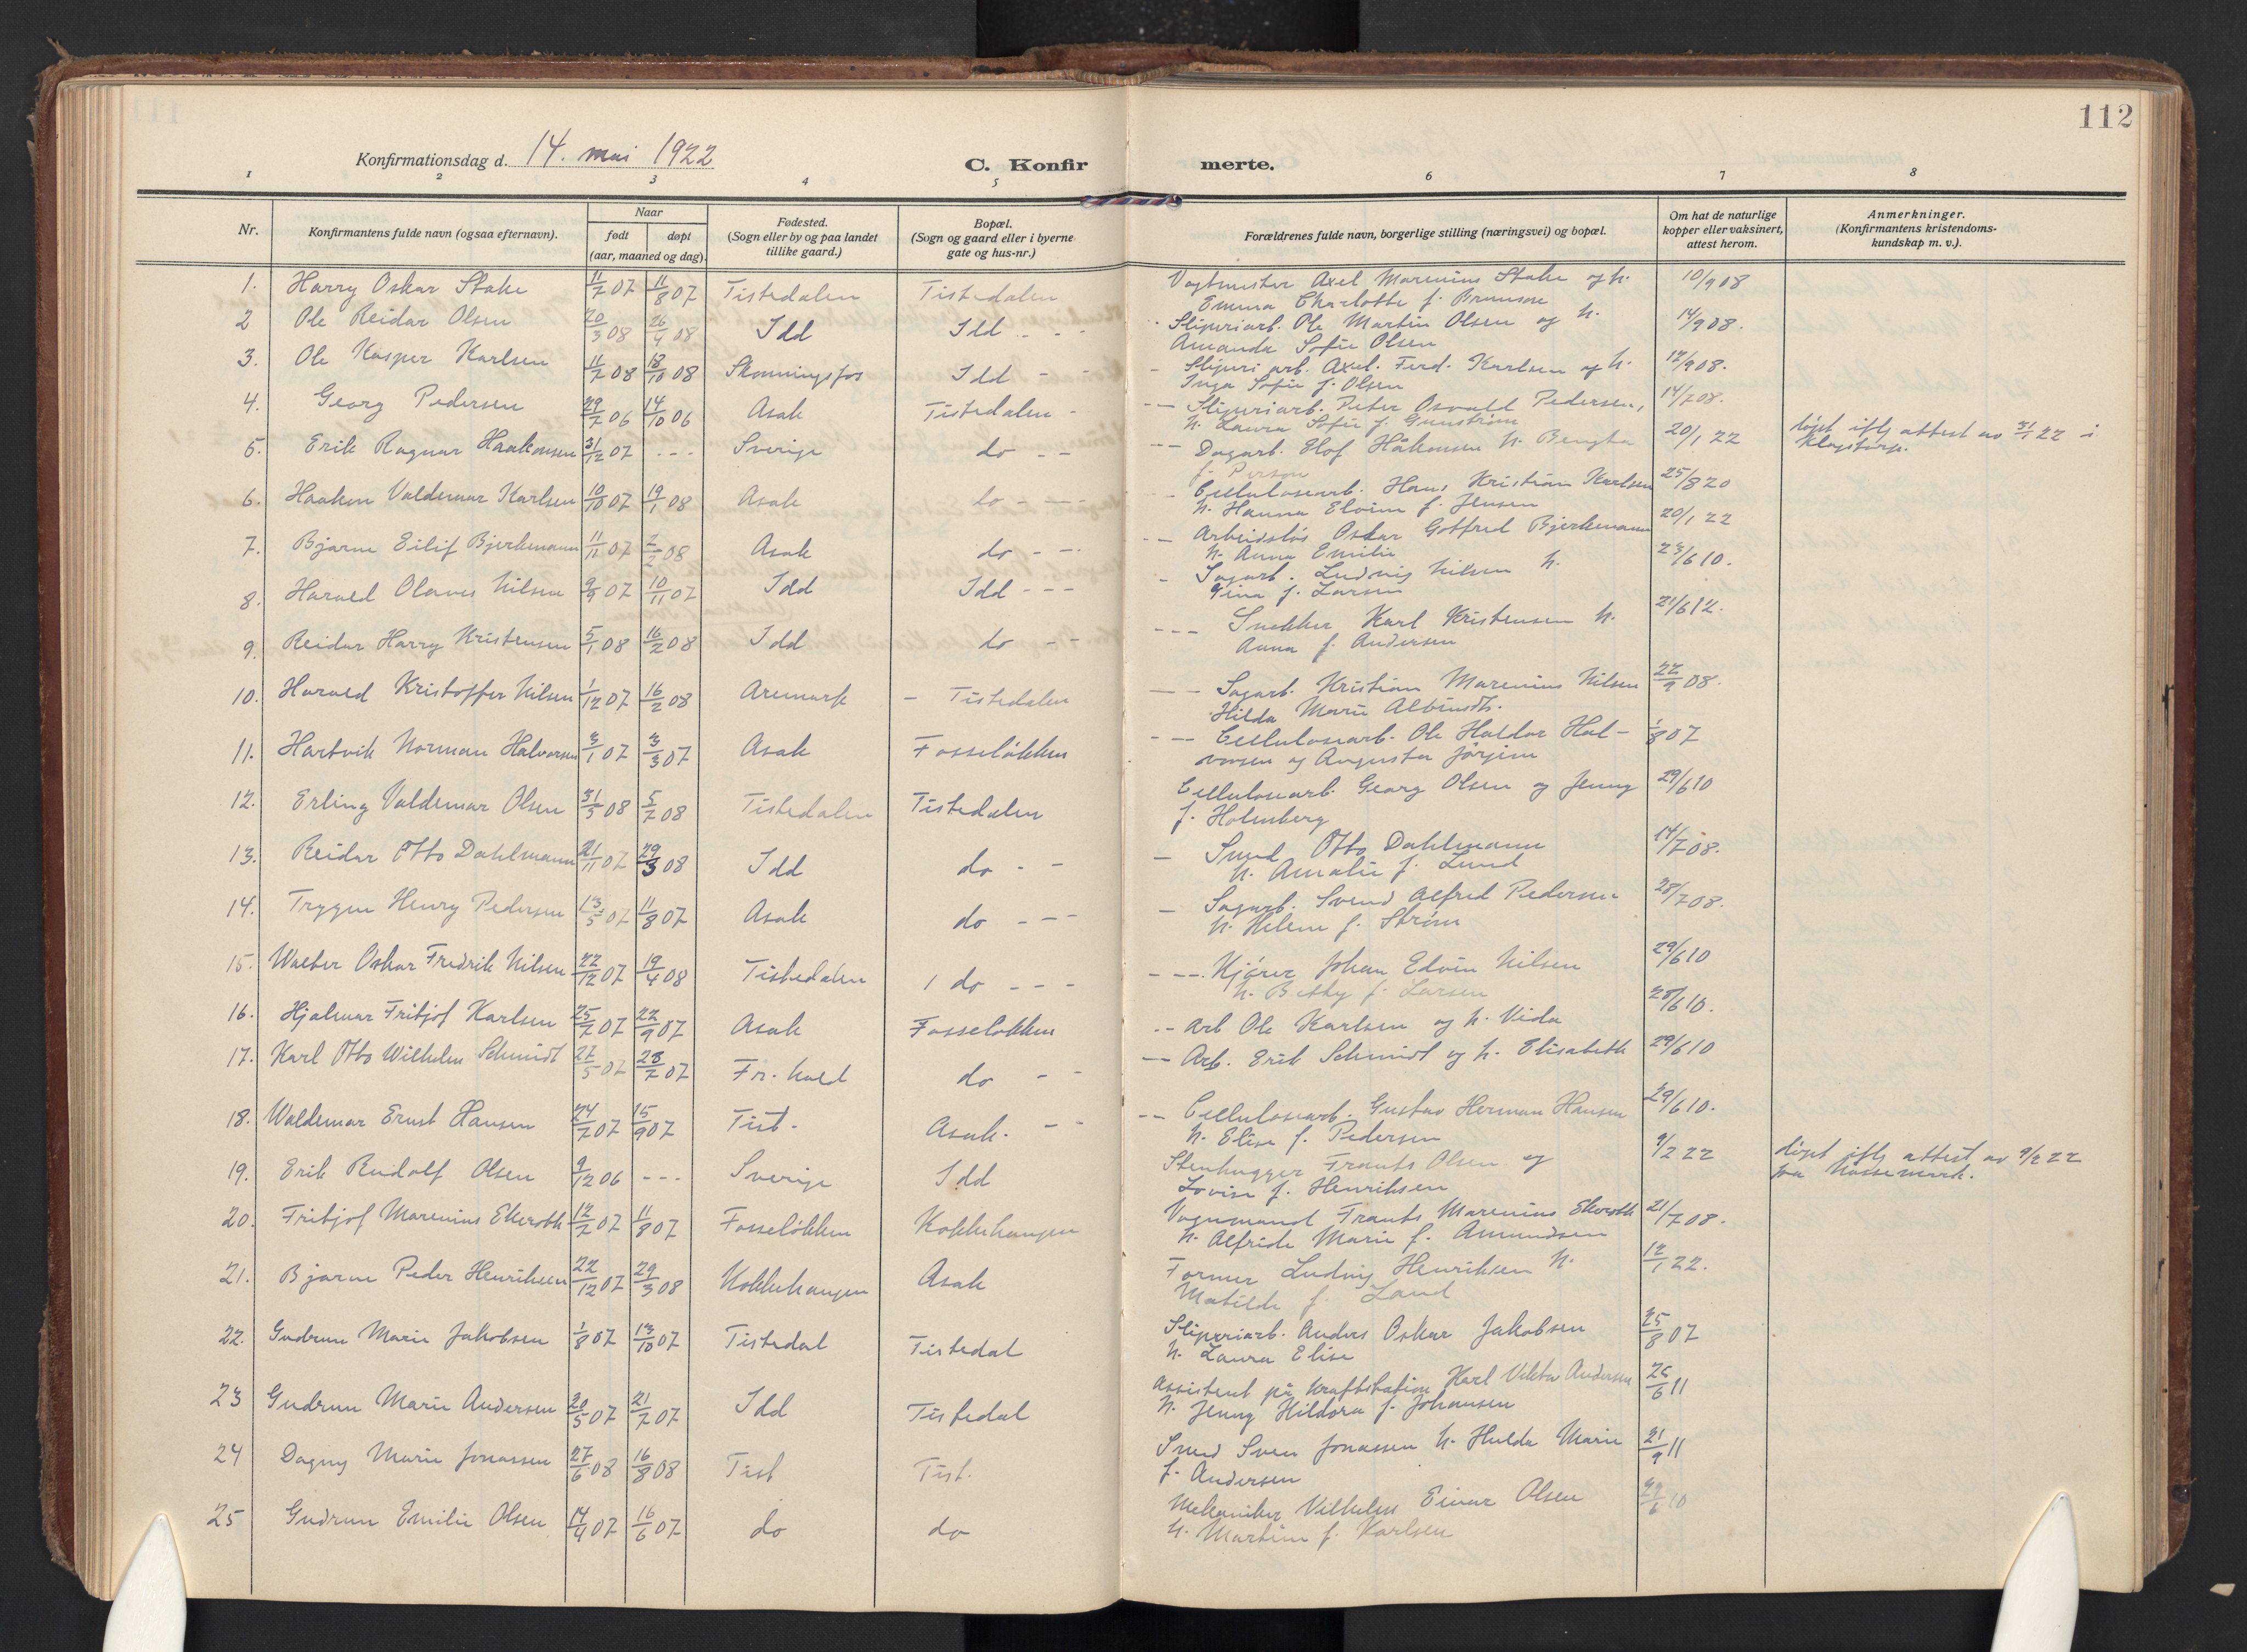 112
Konfirmationsdag d. 14. mai 1922
C. Konfirmerte.
1 2 3 4 5 6 7 8
Nr.
Konfirmantens fulde navn (ogsaa efternavn).
Naar
født døpt
(aar, maaned og dag).
Fødested.
(Sogn eller by og paa landet
tillike gaard.)
Bopæl.
(Sogn og gaard eller i byerne
gate og hus-nr.)
Forældrenes fulde navn, borgerlige stilling (næringsvei) og bopæl.
Om hat de naturlige
kopper eller vaksinert,
attest herom.
Anmerkninger.
(Konfirmantens kristendoms-
kundskap m. v.).
1. Harry Oskar Stake 11/7 07 11/8 07 Tistedalen Tistedalen Vogtmester Axel Marenius Stake og h. 10/9 08
Emma Charlotte f.
2 Ole Reidar Olsen 20/3 08 26/4 08 Idd Idd - - Sliperiarb. Ole Martin Olsen og h. 14/9 08.
Amanda Sofie Olsen
3. Ole Kasper Karlsen 11/7 08 18/10 08 Skonningsfos Idd - - - Sliperiarb. Axel. Ferd. Karlsen og h. 12/9 08.
Inga Sofie f. Olsen
4. Georg Pedersen 29/7 06 14/10 06 Asak Tistedalen - -- Sliperiarb. Peter Osvald Pedersen, 14/7 08.
h. Laura Sofie f. Gunstrøm
5. Erik Ragnar Haakonsen 31/12 07 --- Sverige do -- --- Dagarb. Håkansen h. Bengta 20/1 22 døpt iflg attest av 31/1 22 i
f. Person
6. Haakon Valdemar Karlsen 10/10 07 19/1 08 Asak do --- Cellulosearb. Hans Kristian Karlsen 25/8 20
h. Hanna f. Jensen
7. Bjarne Eilif Bjerkemann 11/11 07 2/2 08 Asak do --- -- Arbeidsløs Oskar Gotfred Bjerkemann 20/1 22
h. Anna Emilie
8. Harald Olaves Nilsen 9/9 07 10/11 07 Idd Idd --- - Sagarb. Ludvig Nilsen h. 23/6 10.
Gina f. Larsen
9. Reidar Harry Kristensen 5/1 08 16/2 08 Idd do -- --- Snekker Karl Kristensen h. 21/6 12.
Anna f. Andersen
10. Harald Kristoffer Nilsen 1/12 07 16/2 08 Aremark - Tistedalen -- Sagarb. Kristian Marenius Nilsen 22/9 08.
Hilda Marie
11. Hartvik Norman Halvorsen 3/1 07 3/3 07 Asak Fosseløkken -- Cellulosearb. Ole Haldor Hal- 1/8 07
vorsen og Augusta Jørgine
12. Erling Valdemar Olsen 31/5 08 5/7 08 Tistedalen Tistedalen Cellulosearb. Georg Olsen og Jenny 29/6 10
f. Holmberg
13. Reidar Otto Dahlmann 21/11 07 29/3 08 Idd do -- - Smed Otto Dahlmann 14/7 08.
h. Amalie f. Lund
14. Trygve Henry Pedersen 13/5 07 11/8 07 Asak do --- - Sagarb. Svend Alfred Pedersen 28/7 08.
h. Helene f. Strøm
15. Walter Oskar Fredrik Nilsen 22/12 07 19/4 08 Tistedalen do --- --- Kjører Johan Edvin Nilsen 29/6 10
h. Betty f. Larsen
16. Hjalmar Fritjof Karlsen 25/7 07 22/9 07 Asak Fosseløkken -- Arb Ole Karlsen og h. Vida 28/6 10.
17. Karl Otto Wilhelm Schmidt 27/5 07 28/7 07 Fr. hald do -- -- Arb. Erik Schmidt og h. Elisabeth 29/6 10
18. Waldemar Ernst Hansen 24/7 07 15/9 07 Tist. Asak. -- -- Cellulosearb. Gustav Herman Hansen 29/6 10.
h. Elise f. Pedersen
19. Erik Rudolf Olsen 9/12 06 --- Sverige Idd Stenhugger Frants Olsen og 9/2 22 døpt iflg attest av 9/2 22
Lovise f. Henriksen
20. Fritjof Marenius Ekeroth 12/7 07 11/8 07 Fosseløkken Kokkehaugen Vognmand Frants Marenius Ekeroth 21/7 08.
h. Alfride Marie f. Amundsen
21. Bjarne Peder Henriksen 22/12 07 29/3 08 Kokkehaugen Asak Former Ludvig Henriksen h. 12/1 22.
Matilde f. Lund
22. Gudrun Marie Jakobsen 1/8 07 13/10 07 Tistedal Tistedal Sliperiarb. Anders Oskar Jakobsen 25/8 07
h. Laura Elise
23 Gudrun Marie Andersen 20/5 07 21/7 07 Idd Tistedal Assistent på kraftstation Karl Viktor Andersen 26/6 11
h. Jenny Hildora f. Johansen
24 Dagny Marie Jonassen 27/6 08 16/8 08 Tist Tist. Smed Sven Jonassen h. Hulda Marie 21/9 11
f. Andersen
25 Gudrun Emilie Olsen 14/4 07 16/6 07 do do Mekaniker Vilhelm Einar Olsen 29/6 10
h. Martine f. Karlsen